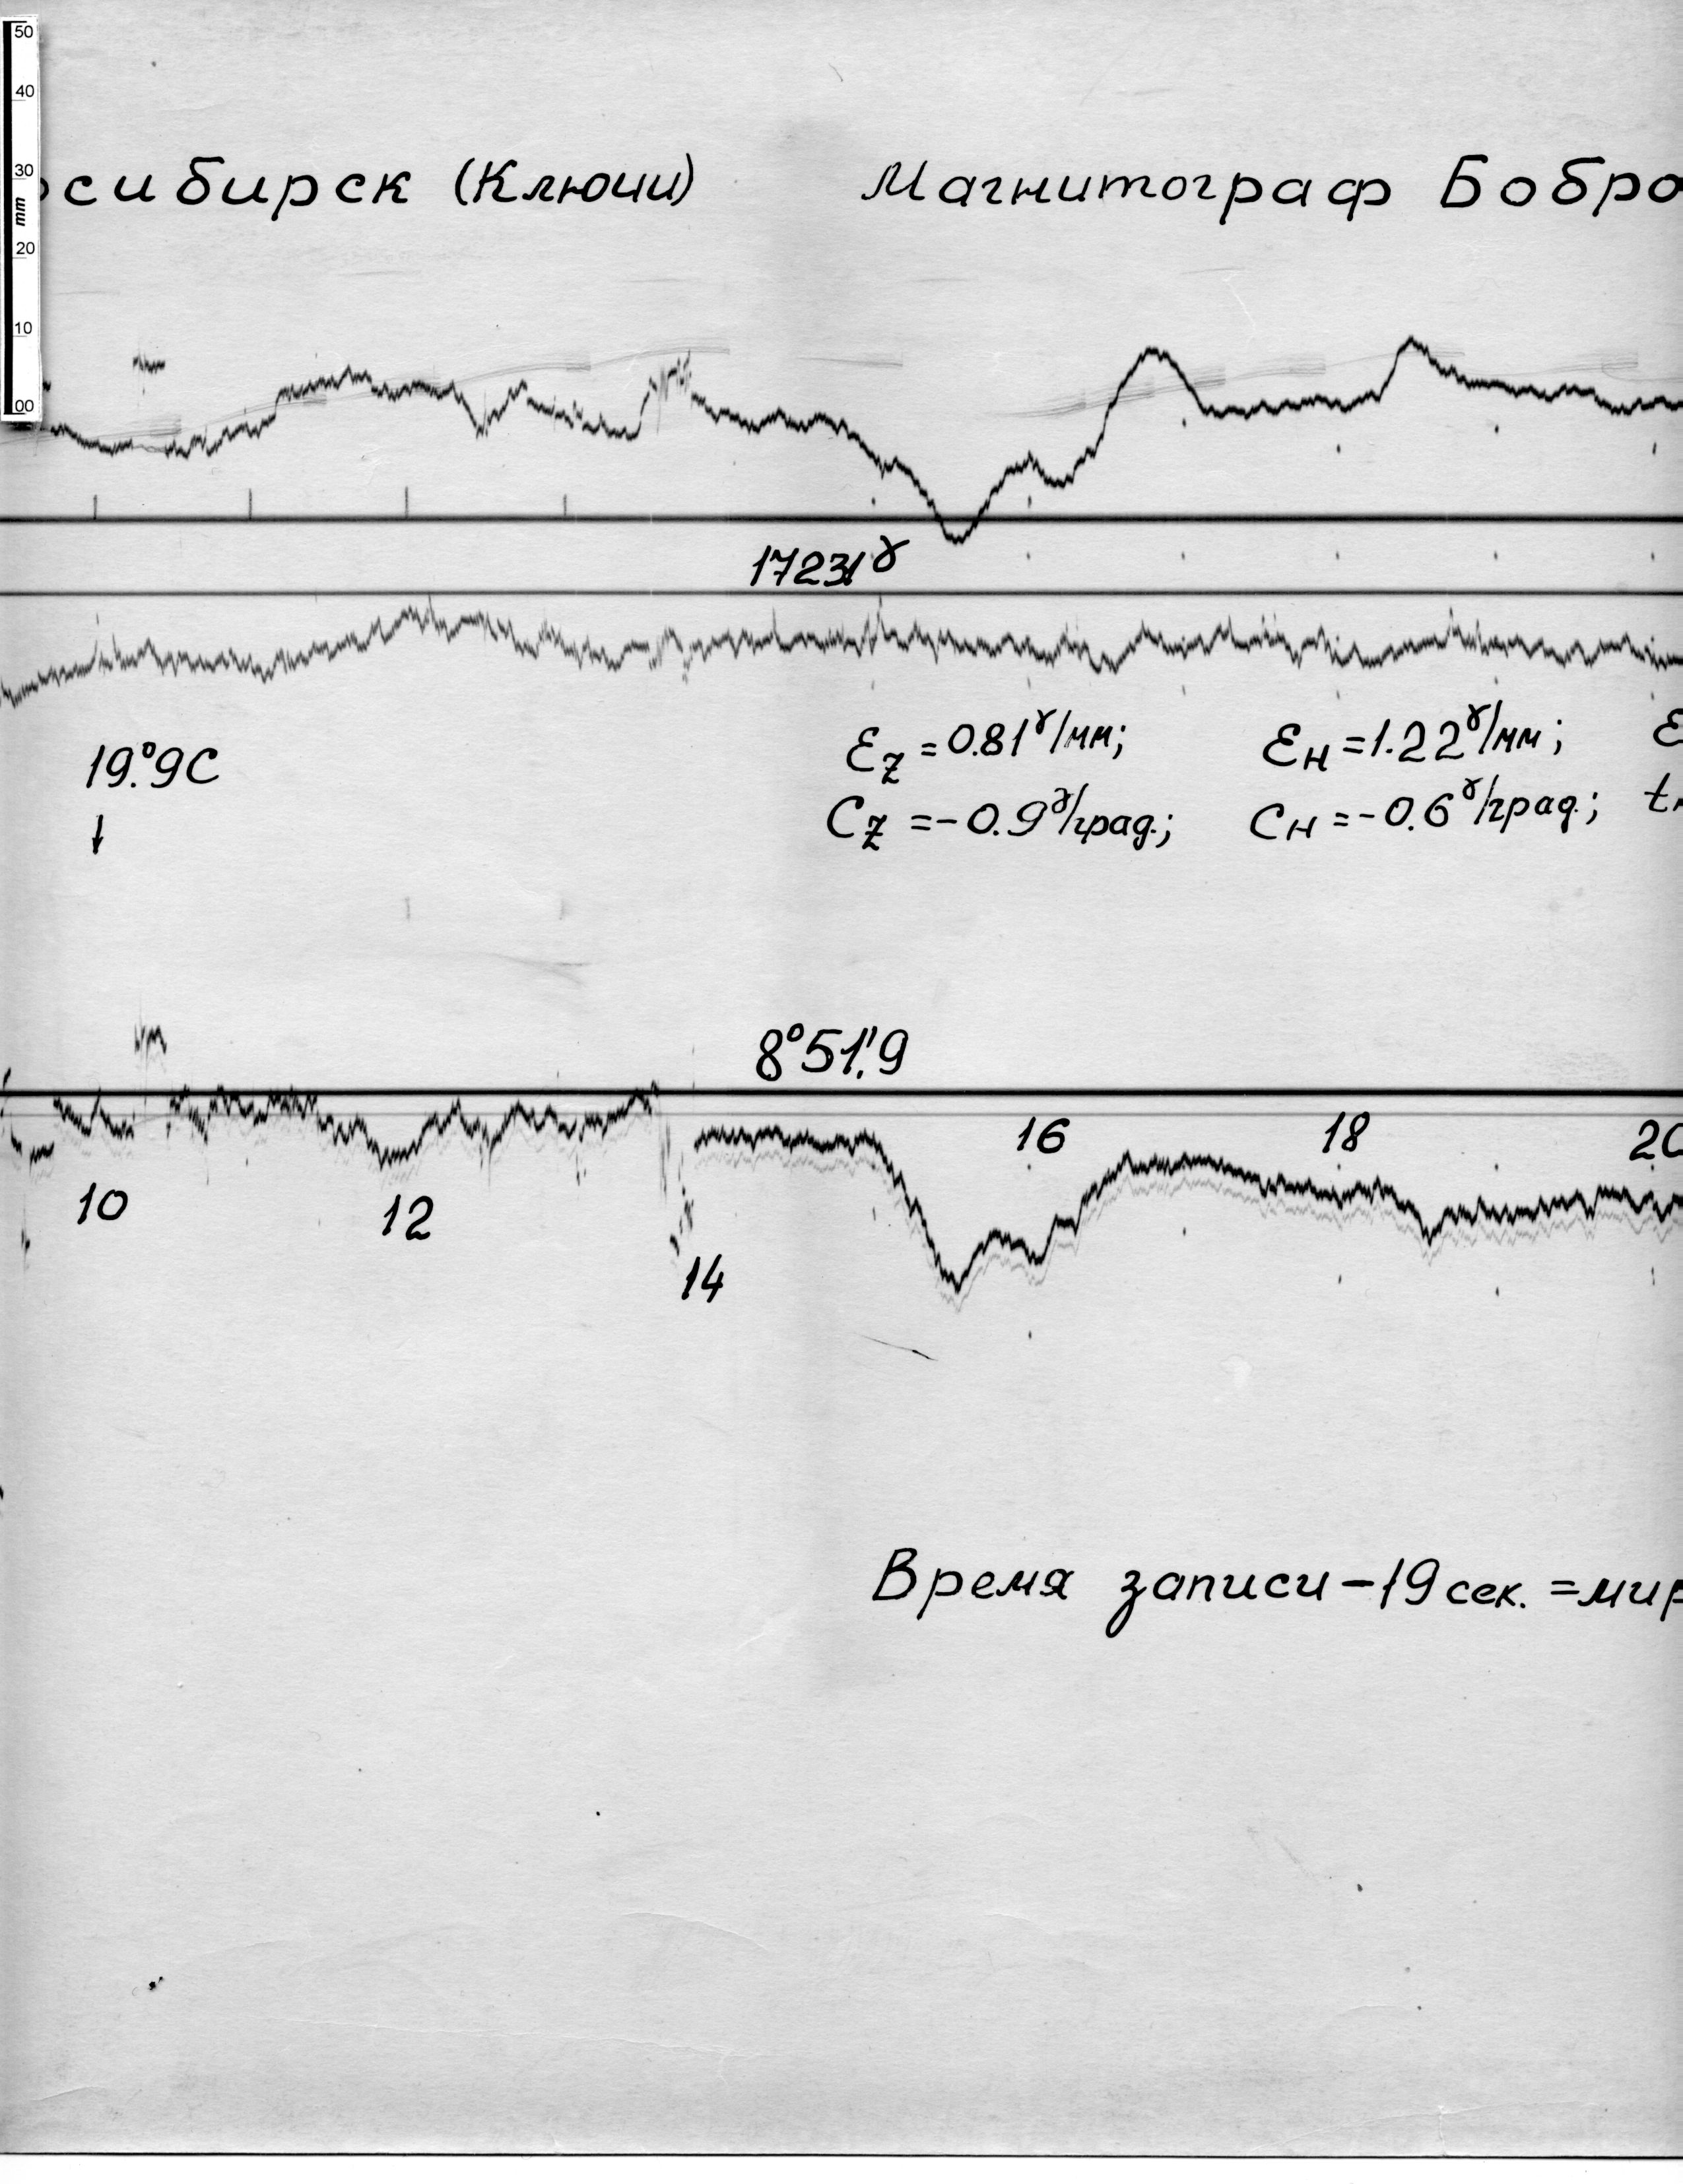 50
40
30
mm
20
10
00
осибирск (Ключи) Магнитограф Бобро
17231γ
19.°9C
Ɛz = 0.81γ/мм; ƐH = 1.22γ/мм; Ɛ
Cz = -0.9γ/град.; CH = -0.6γ/град.; t
8°51.'9
10 12 14 16 18 20
Время записи - 19 сек. = мир